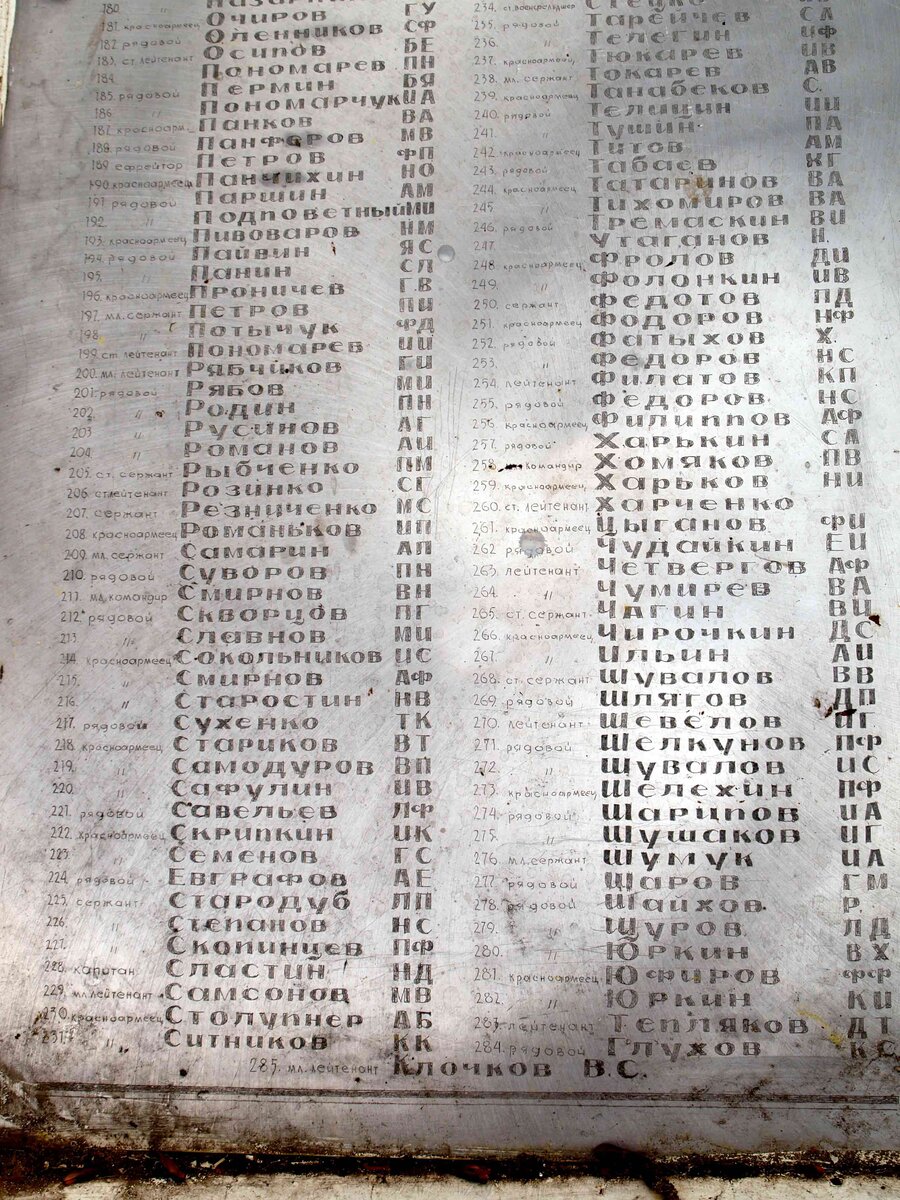 180.
181. красноармеец Очиров ГУ
182 рядовой Оленников СФ
183. ст.лейтенант Осипов БЕ
184. Пономарев ПН
185. рядовой Пермин БЯ
186 " Пономарчук ИА
187. красноарм. Панков ВА
188. рядовой Панферов МВ
189 ефрейтор Петров ФП
190. красноармеец Панчихин НО
191 рядовой Паршин АМ
192. " Подповетный МИ
193. красноармеец Пивоваров НМ
194. рядовой Пайвин ЯС
195. " Панин СЛ
196. красноармеец Проничев Г.В
197. мл.сержант Петров ПИ
198. " Потычук ФД
199. ст лейтенант Пономарев ИИ
200. мл. лейтенант Рябчиков ГИ
201. рядовой Рябов МИ
202. " Родин ПН
203 " Русинов АГ
204. " Романов АИ
205. ст. сержант Рыбченко ПМ
206. ст.лейтенант Розинко СГ
207. сержант Резниченко МС
208. красноармеец Романьков ИП
209. мл. сержант Самарин АП
210. рядовой Суворов ПН
211. мл.командир Смирнов ВН
212. рядовой Скворцов ПГ
213 " Славнов МИ
214. красноармеец Сокольников ИС
215. " Смирнов АФ
216. " Старостин НВ
217. рядовой Сухенко ТК
218. красноармеец Стариков ВТ
219. " Самодуров ВП
220. " Сафулин ИВ
221. рядовой Савельев ЛФ
222. красноармеец Скрипкин ИК
223 " Семенов ГС
224. рядовой Евграфов АЕ
225. сержант Стародуб ЛП
226. " Степанов НС
227. " Скопинцев ПФ
228. капитан Сластин НД
229. мл.лейтенант Самсонов МВ
230. красноармеец Столупнер АБ
231. " Ситников КК
234. Стецко
235. рядовой Таренчев СЛ
236. " Телегин ИФ
237. красноармеец Тюкарев ИВ
238. мл. сержант Токарев АВ
239. красноармеец Танабеков С.
240. рядовой Телицин ИИ
241. " Тушин ПА
242. красноармеец Титов АМ
243. рядовой Табаев КГ
244. красноармеец Татаринов ВА
245. " Тихомиров ВА
246. рядовой Тремаскин ВИ
247. Утаганов Н.
248. красноармеец Фролов ДИ
249. " Фолонкин ИВ
250. сержант Федотов ПД
251. красноармеец Фодоров НФ
252. рядовой Фатыхов Х.
253. " Федоров НС
254. лейтенант Филатов КП
255. рядовой Федоров НС
256. Красноармеец Филиппов АФ
257. рядовой Харькин СА
258. командир Хомяков ПВ
259. красноармеец Харьков НИ
260. ст. лейтенант Харченко
261. красноармеец Цыганов ФИ
262 рядовой Чудайкин ЕИ
263. лейтенант Четвергов АФ
264. " Чумирев ВА
265. ст. сержант Чагин ВЦ
266. красноармеец Чирочкин ДС
267. " Ильин АИ
268. ст. сержант Шувалов ВВ
269. рядовой Шлягов ДП
270. лейтенант Шевелов ПГ
271. рядовой Шелкунов ПФ
272. " Шувалов ИС
273. красноармеец Шелехин ПФ
274. рядовой Шарипов ИА
275. " Шушаков ИГ
276. мл.сержант Шумук ИА
277. рядовой Шаров ГМ
278. рядовой Шайхов Р.
279. " Щуров ЛД
280. " Юркин ВХ
281. красноармеец Юфиров ФФ
282. " Юркин КИ
283. лейтенант Тепляков ДТ
284. рядовой Глухов КС
285. мл. лейтенант Клочков В.С.